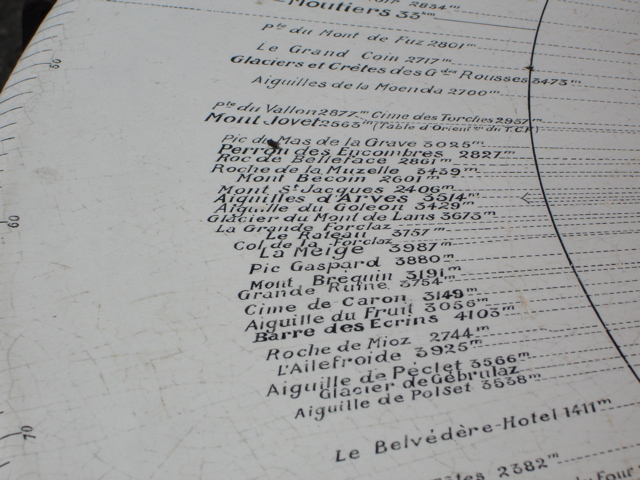 2834m
Moutiers 33km
Pte du Mont de Fuz 2801m
Le Grand Coin 2717m
Glaciers et Crêtes des Gdes Rousses 3473m
Aiguilles de la Moenda 2700m
50
pte du Vallon 2877m Cime des Torches 2957m
Mont Jovet 2563m (Table d'Orienton du T.C.F)
Pic du Mas de la Grave 3025m
Perron des Encombres 2827m
Roc de Belleface 2861m
Roche de la Muzelle 3439m
Mont Bécoin 2601m
Mont St Jacques 2406m
Aiguilles d'Arves 3514m
60
Aiguille du Goléon 3429m
Glacier du Mont de Lans 3673m
La Grande Forclaz
Le Rateau 3757m
Col de la Forclaz
La Meige 3987m
Pic Gaspard 3880m
Mont Bréquin 3191m
Grande Ruine 3754m
Cime de Caron 3149m
Aiguille du Fruit 3056m
Barre des Ecrins 4103m
Roche de Mioz 2744m
L'Ailefroide 3925m
Aiguille de Péclet 3566m
Glacier de Gébrulaz
Aiguille de Polset 3538m
Le Belvédère-Hotel 1411m
70
2382m
du Four